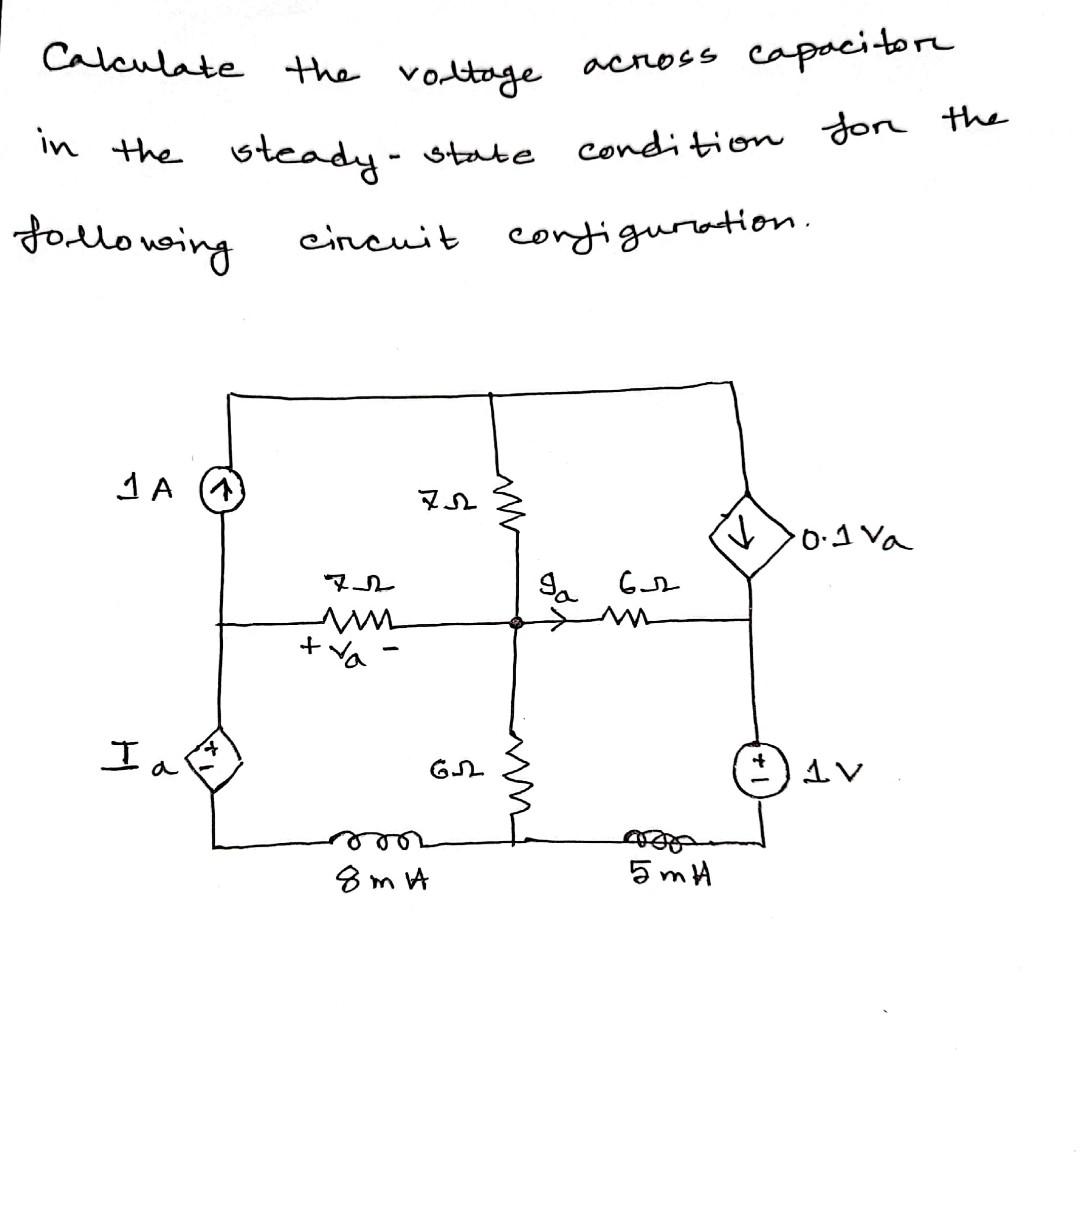 Calculate the voltage across capacitor
in the steady-state condition for the
following circuit configuration.
1A
7Ω
0.1 Va
7Ω
Ia 6Ω
+ Va -
Ia
+
-
6Ω
+
-
1V
8mH
5mH